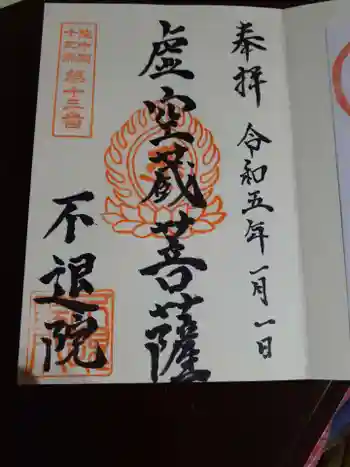 奉拝
令和五年一月一日
虚空蔵菩薩
第十三番
不退院